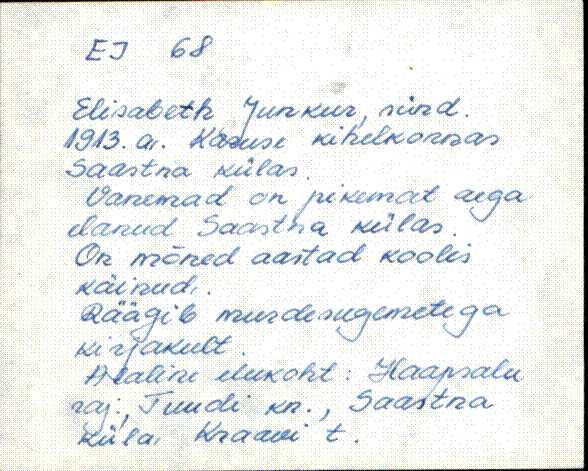 EJ 68
Elisabeth Junkur, sünd.
1913. a. Karuse kihelkonnas
Saastna külas.
Vanemad on pikemat aega
elanud Saastna külas.
On mõned aastad koolis
käinud.
Räägib murdesugemetega
kirjakult.
Alaline elukoht: Haapsalu
raj., Tuudi kn., Saastna
küla, Kraavi t.